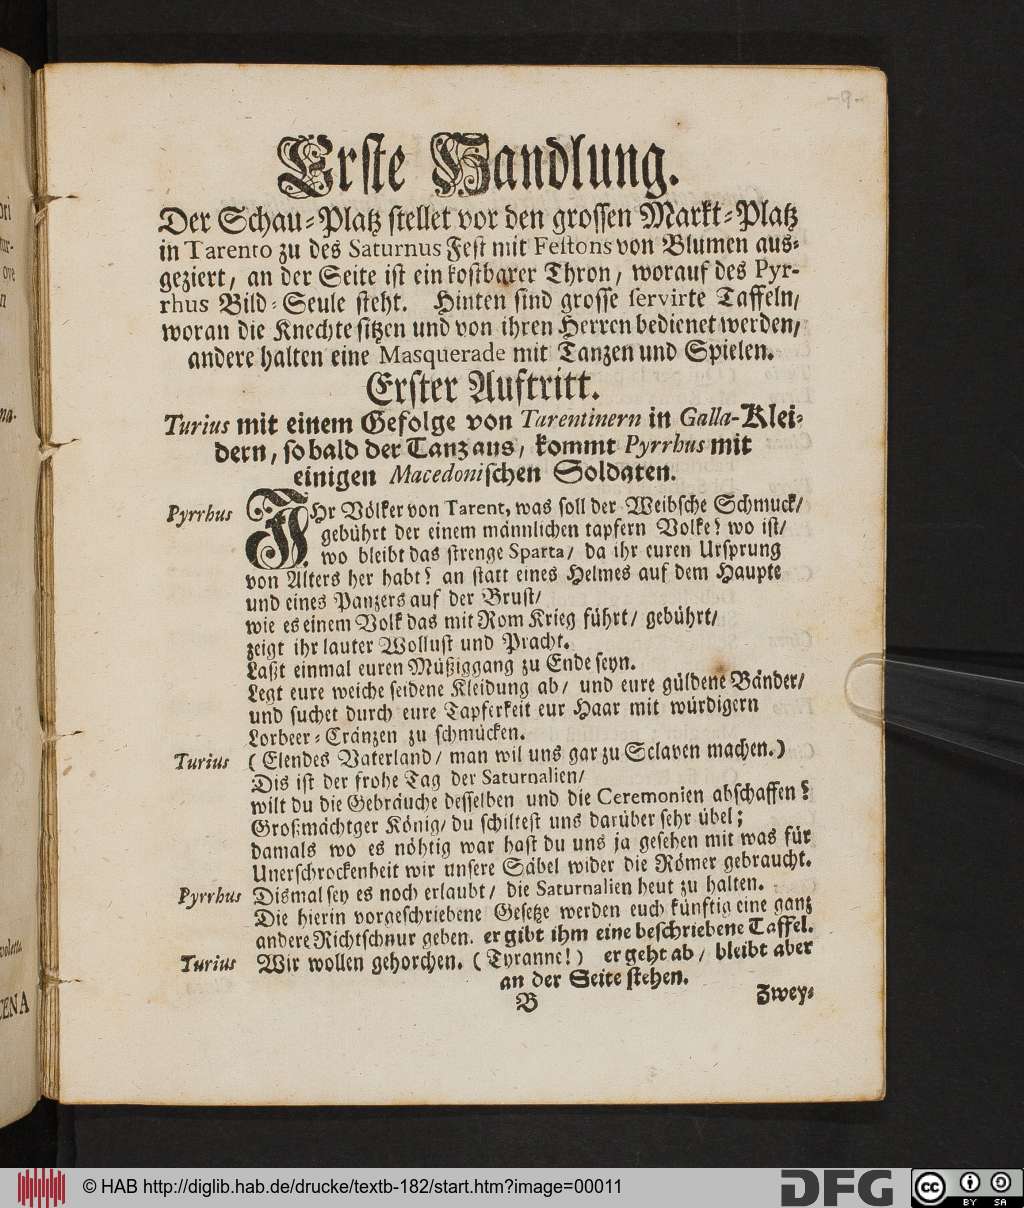 -9-
Erste Handlung.
Der Schau-Platz stellet vor den grossen Markt-Platz
in Tarento zu des Saturnus Fest mit Festons von Blumen aus-
geziert, an der Seite ist ein kostbarer Thron, worauf des Pyr-
rhus Bild-Seule steht. Hinten sind grosse servirte Taffeln,
woran die Knechte sitzen und von ihren Herren bedienet werden,
andere halten eine Masquerade mit Tanzen und Spielen.
Erster Auftritt.
Turius mit einem Gefolge von Tarentinern in Galla-Klei-
dern, so bald der Tanz aus, kommt Pyrrhus mit
einigen Macedonischen Soldaten.
Pyrrhus IHr Völker von Tarent, was soll der Weibsche Schmuck/
gebührt der einem männlichen tapfern Volke? wo ist/
wo bleibt das strenge Sparta/ da ihr euren Ursprung
von Alters her habt? an statt eines Helmes auf dem Haupte
und eines Panzers auf der Brust/
wie es einem Volk das mit Rom Krieg führt/ gebührt/
zeigt ihr lauter Wollust und Pracht.
Laßt einmal euren Müßiggang zu Ende seyn.
Legt eure weiche seidene Kleidung ab/ und eure güldene Bänder/
und suchet durch eure Tapferkeit eur Haar mit würdigern
Lorbeer-Cränzen zu schmücken.
Turius (Elendes Vaterland/ man wil uns gar zu Sclaven machen.)
Dis ist der frohe Tag der Saturnalien/
wilt du die Gebräuche desselben und die Ceremonien abschaffen?
Großmächtger König/ du schiltest uns darüber sehr übel;
damals wo es nöhtig war hast du uns ja gesehen mit was für
Unerschrockenheit wir unsere Säbel wider die Römer gebraucht.
Pyrrhus Dismal sey es noch erlaubt/ die Saturnalien heut zu halten.
Die hierin vorgeschriebene Gesetze werden euch künftig eine ganz
andere Richtschnur geben. er gibt ihm eine beschriebene Taffel.
Turius Wir wollen gehorchen. (Tyranne!) er geht ab/ bleibt aber
an der Seite stehen.
B Zwey-
© HAB http://diglib.hab.de/drucke/textb-182/start.htm?image=00011
DFG
cc BY SA